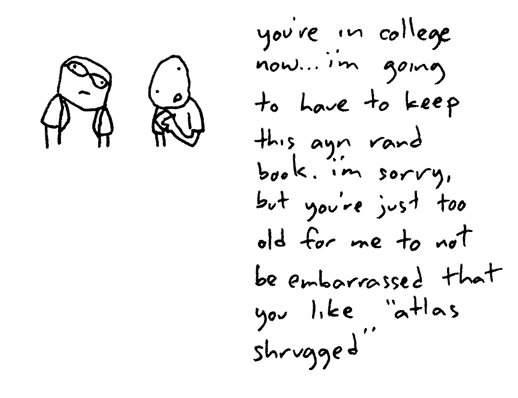 you're in college
now... i'm going
to have to keep
this ayn rand
book. i'm sorry,
but you're just too
old for me to not
be embarrassed that
you like "atlas
shrugged"